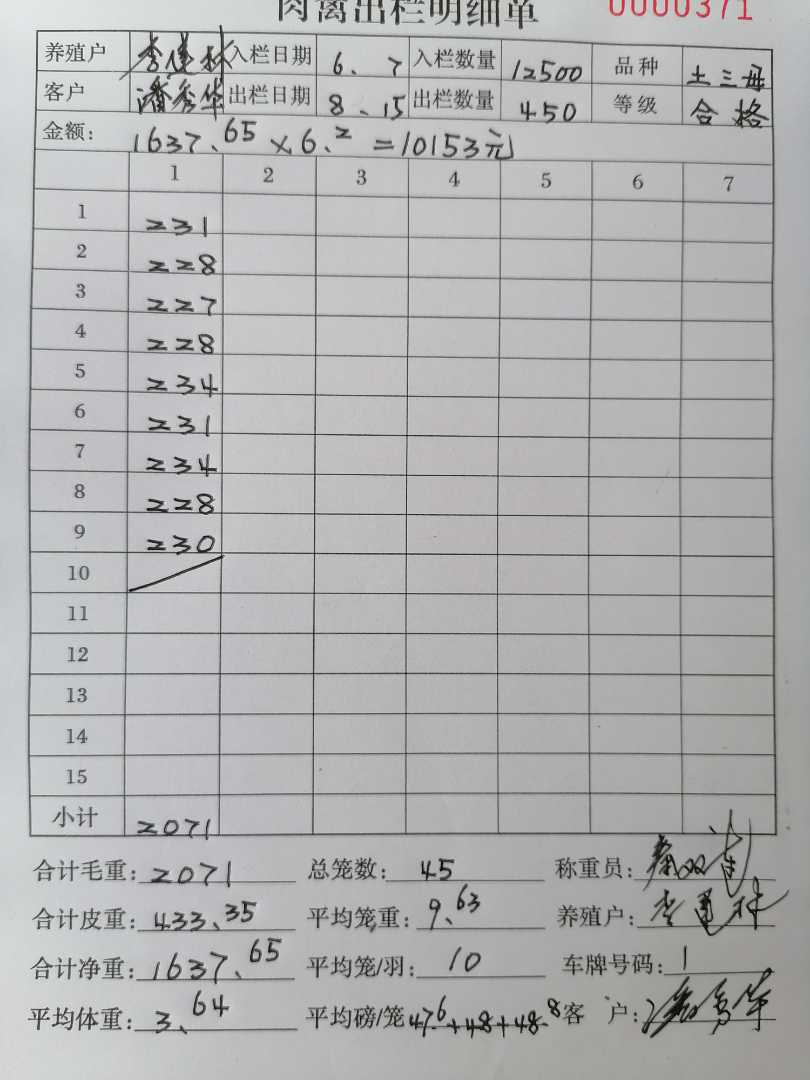 肉禽出栏明细单 0000371
养殖户 李建林 入栏日期 6.7 入栏数量 12500 品种 土三母
客户 潘秀华 出栏日期 8.15 出栏数量 450 等级 合格
金额: 1637.65 × 6.2 = 10153元
1 2 3 4 5 6 7
1 231
2 228
3 227
4 228
5 234
6 231
7 234
8 228
9 230
10
11
12
13
14
15
小计 2071
合计毛重: 2071 总笼数: 45 称重员:
合计皮重: 433.35 平均笼重: 9.63 养殖户: 李建林
合计净重: 1637.65 平均笼/羽: 10 车牌号码: 1
平均体重: 3.64 平均磅/笼 47.6+48+48.8 客 户: 潘秀华